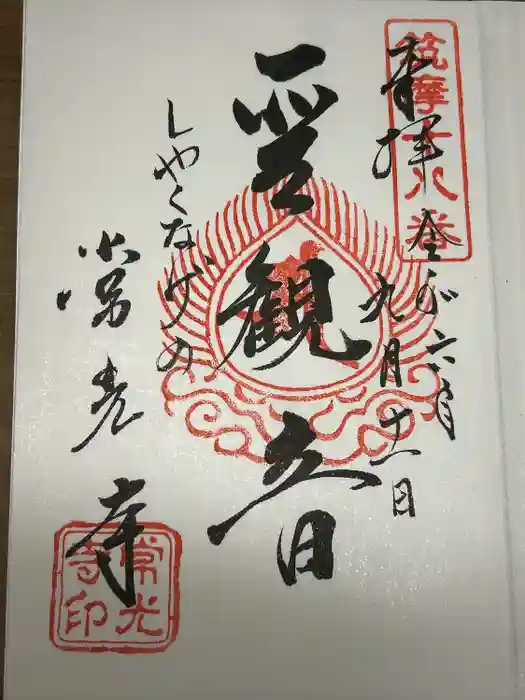 筑摩十八番
奉拝 令和六年
九月十一日
聖観音
しやくなげの
常光寺
常光
寺印